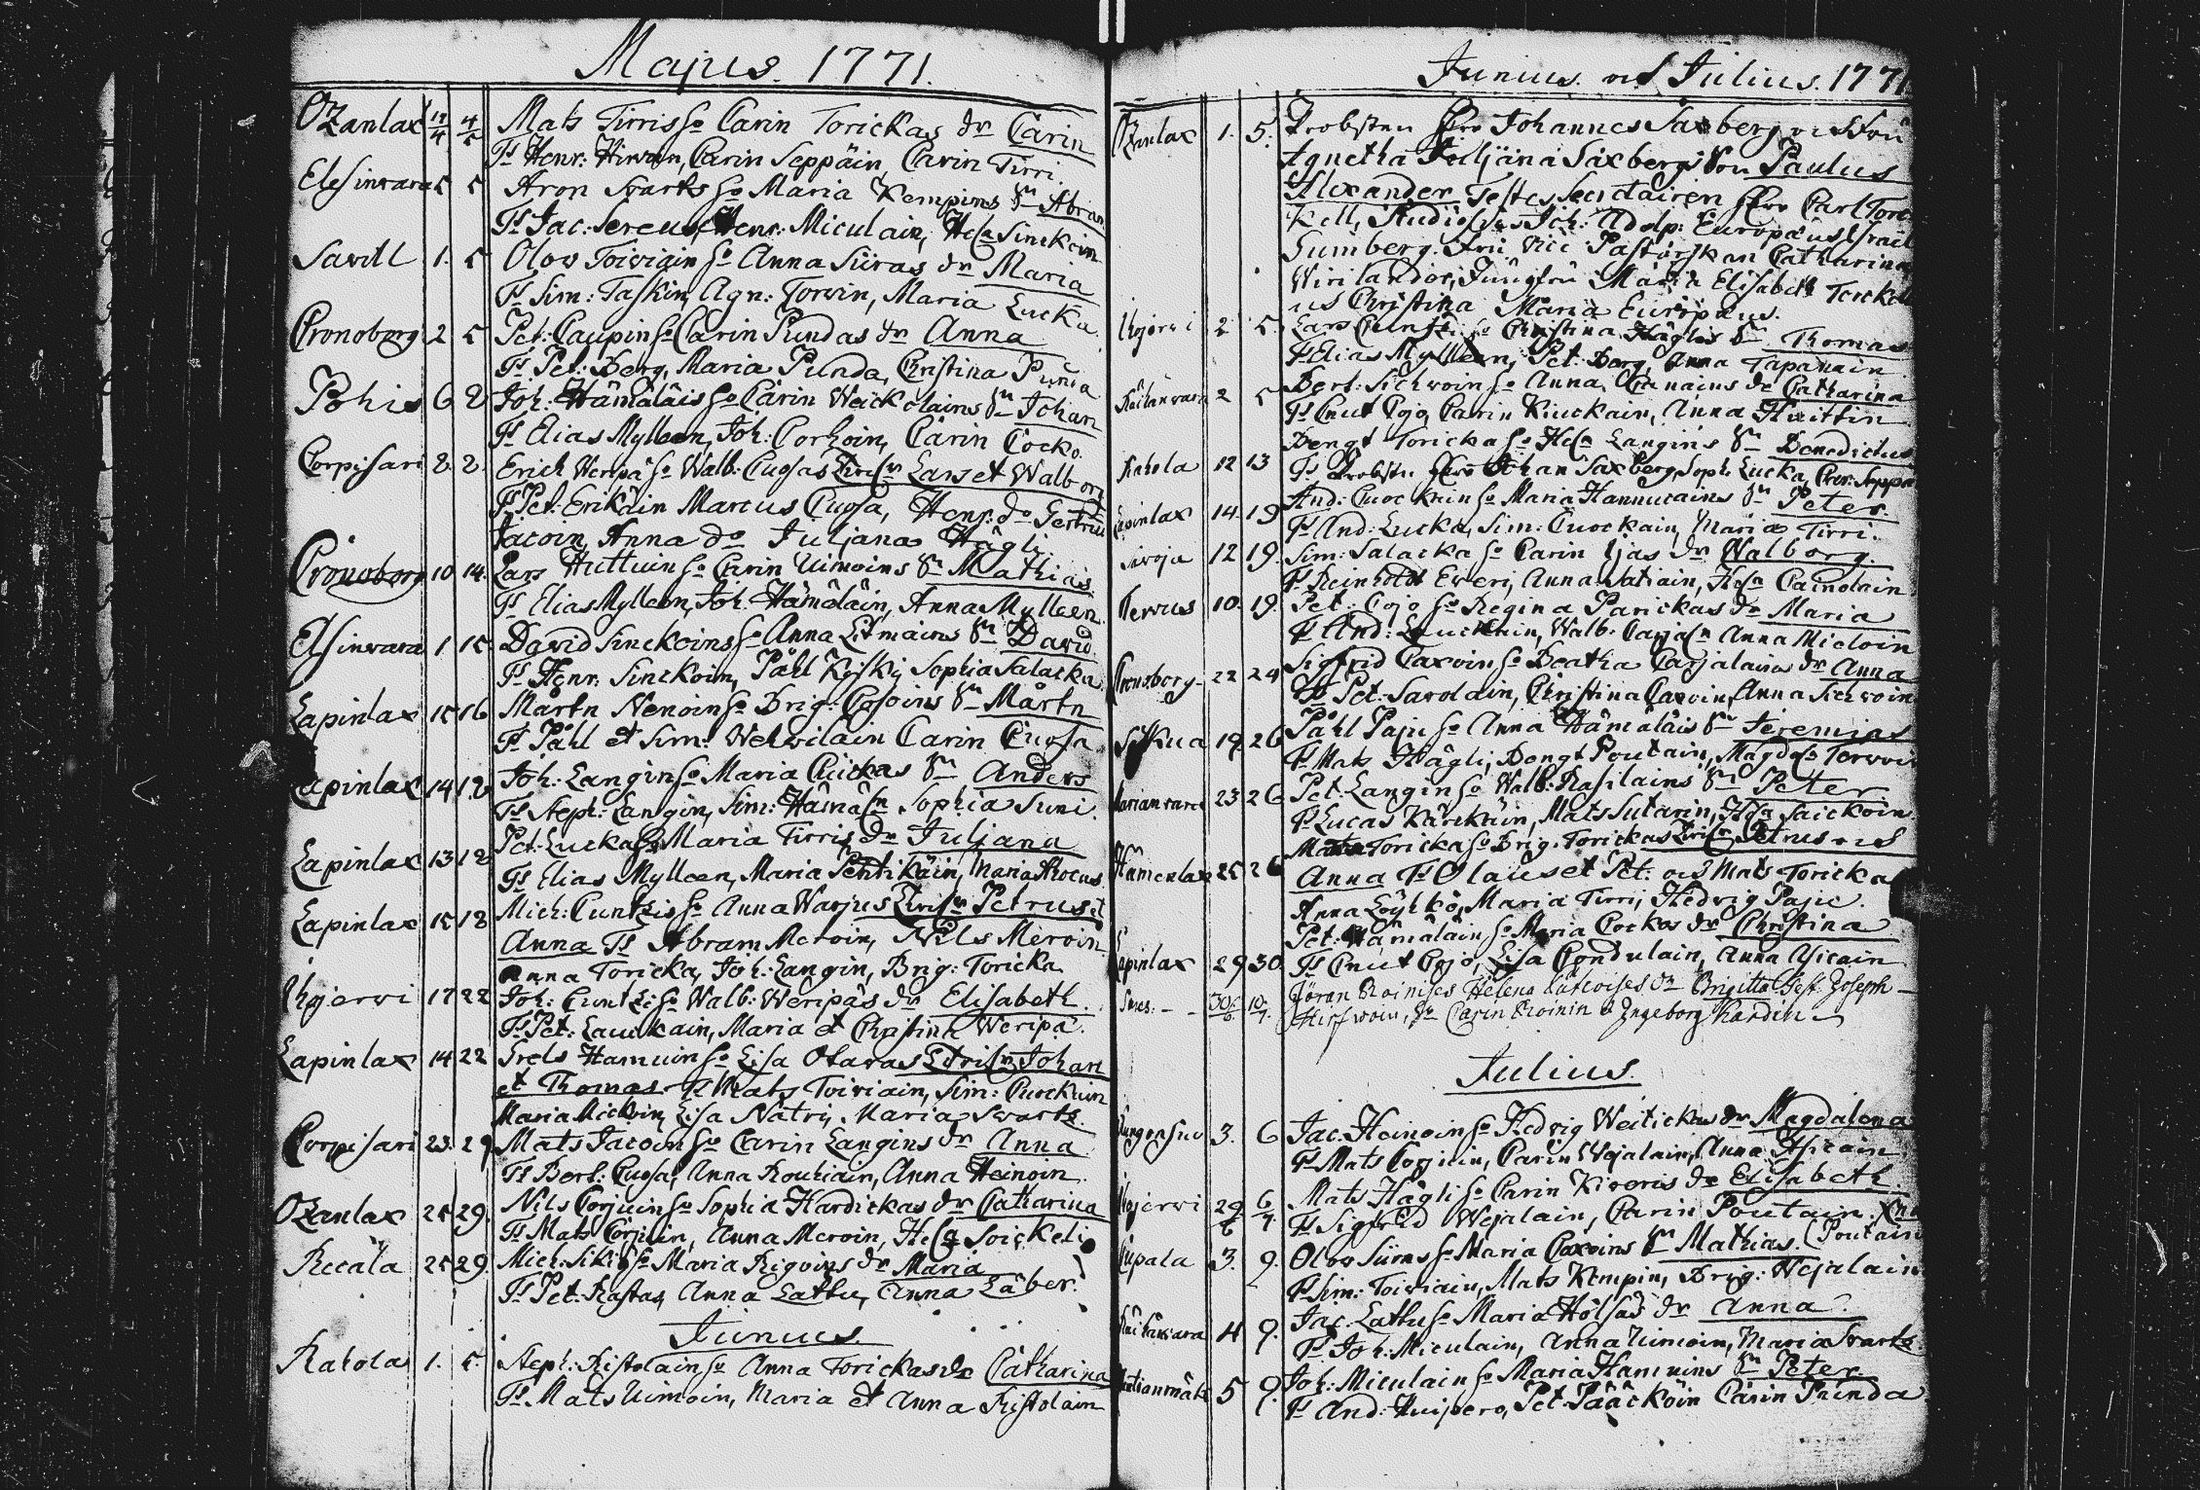 Majus. 1771.
Ozanlax 19/4 4/5 Mats Tirris So Carin Torickas dr Carin
Ts Henr: Hirvoin, Carin Seppäin, Carin Tirri.
Elesinvara 5 5 Aron Svarts So Maria Kempins Sn Abram
Ts Jac: Sereus, Henr: Miculain, Hesn Sinckoin
Savill 1. 5 Olov Toiviain So Anna Siiras dr Maria
Ts Sim: Taskin, Agn: Torvin, Maria Lucka.
Cronoborg 2 5 Pet: Caupin So Carin Pundas dr Anna
Ts Pet: Berg, Maria Punda, Christina Punda
Pohis 6 8 Joh: Hämäläis So Carin Weickolains Sn Johan
Ts Elias Mylleen, Joh: Corhoin, Carin Cocko.
Corpisari 8. 8. Erich Weripä So Walb: Cuosas Lars et Walborg
Ts Pet: Erikäin Marcus Cuosa, Henr: do Gertrud
Jacoin, Anna do Juljana Hägli.
Cronoborg 10 14. Lars Huttuin So Carin Uimoins Sn Mathias
Ts Elias Mylleen, Joh. Hämäläin, Anna Mylleen.
Elsinvara 1 15 David Sinckoins So Anna Litmains Sn David.
Ts Henr: Sinckoin, Påhl Kiski, Sophia Salacka.
Lapinlax 15 16 Mårtn Nenoin So Brig: Cosoins Sn Mårtn
Ts Påhl et Sim: Wehvilain Carin Cuosa.
Lapinlax 14 18 Joh: Langin So Maria Cuickas Sn Anders
Ts Steph: Langin, Sim: Hämäln Sophia Suni.
Lapinlax 13 18 Pet: Lucka So Maria Tirris dr Juljana
Ts Elias Mylleen, Maria Penttikäin, Maria
Lapinlax 15 18 Mich: Puntzis So Anna Warjus Petrus et
Anna Ts Abram Meroin, Nils Meroin
Anna Toricka, Joh: Langin, Brig: Toricka
Ihojervi 17 22 Joh: Puntzi So Walb: Weripäs dr Elisabeth
Ts Pet: Lauckain, Maria et Christina Weripä.
Lapinlax 14 22 Grels Hamuin So Lisa Otavas Johan
et Thomas Ts Mats Toiviain, Sim: Cuockuin
Maria Micloin, Lisa Natri, Maria Svarts.
Corpisari 23. 29 Mats Jacoin So Carin Langins dr Anna
Ts Bert: Cuosa, Anna Rouhiain, Anna Heinoin.
Ozanlax 25 29. Nils Corjuin So Sophia Hardickas dr Catharina
Ts Mats Corjuin, Anna Meroin, Hesn Soickeli
Recala 25 29. Mich: Sikiö So Maria Rigoins dr Maria
Ts Pet: Rastas, Anna Lattu, Anna Läber.
Junius.
Rahola 1. 5. Steph: Ristolain So Anna Torickas dr Catharina
Ts Mats Uimoin, Maria et Anna Ristolain
Junius. och Julius. 1771
Ozanlax 1. 5. Probsten Herr Johannes Saxberg och Fru
Agnetha Juljana Saxbergs Son Paulus
Alexander Testes Secretairen Herr Carl Torc
kell, Studiosus Joh: Adolp: Europaeus, Israel
Sumberg. Fru Vice Pastorskan Catharina
Wirilander, Jungfru Maria Elisabeth Torckell
us Christina Maria Europaeus.
Ihojervi 2 5 Lars So Christina Häglis Sn Thomas
Ts Elias Mylleen, Pet: Berg, Anna Tapanain
2 5 Bert: Sichvoin So Anna Cranains dr Catharina
Ts Cnut Cojo, Carin Kiuckain, Anna Huittin
Rahola 12 13 Bengt Toricka So Hesn Langins Sn Benedictus
Ts Probsten Herr Johan Saxberg, Soph: Lucka,
Lapinlax 14. 19 And: Cuockuin So Maria Hannucains Sn Peter.
Ts And: Lucka, Sim: Cuockain, Maria Tirri.
Sivoja 12 19. Sim: Salacka So Carin Ijas dr Walborg.
Ts Reinholdt Everi, Anna Satiain, Hesn Cainolain
Tervus 10. 19. Pet: Cojo So Regina Parickas dr Maria
Ts And: Lauckain, Walb: Anna Micloin
Cronoborg 22 24 Sigfrid Caxoin So Beatha Carjalains dr Anna
Ts Pet: Savolain, Christina Caxoin, Anna Sichvoin
19. 26 Påhl Paju So Anna Hämäläis Sn Jeremias
Ts Mats Hägli, Bengt Poutain, Magdal: Torvoi
Marianvara 23 26 Pet: Langin So Walb: Rasilains Sn Peter
Ts Lucas Kärckäin, Mats Sutarin, Hesn Saickoin.
Hämenlax 25 26 Mats Toricka So Brig: Torickas Petrus och
Anna Ts Olaus et Pet: och Mats Toricka
Anna Löyhkö, Maria Tirri, Hedvig Paju.
Lapinlax 29 30 Pet: Hämäläin So Maria Cockos dr Christina
Ts Cnut Cojo, Lisa Condulain, Anna Yicain
30/6 10/7. Jöran Roinises Helena dr Brigitta Test. Joseph
Hirfwoin, Carin Roinin & Ingeborg Kardin
Julius.
3. 6 Jac: Heinoin So Hedvig Weitickas dr Magdalena
Ts Mats Corjuin, Carin Wejalain, Anna Hyicain
Ihojervi 29/6 6/7. Mats Hägli So Carin Kiveris dr Elisabeth.
Ts Sigfrid Wejalain, Carin Poutain.
3. 9. Olov Siiras So Maria Caxoins Sn Mathias (Poutain
Ts Sim: Toiviain, Mats Kempin, Brig: Wejalain
4 9. Jac: Lattu So Maria Hölsäs dr Anna.
Ts Joh: Miculain, Anna Uimoin, Maria Svarts.
5 9. Joh: Miculain So Maria Hamuins Sn Peter
Ts And: Huispero, Pet: Pääcköin Carin Punda